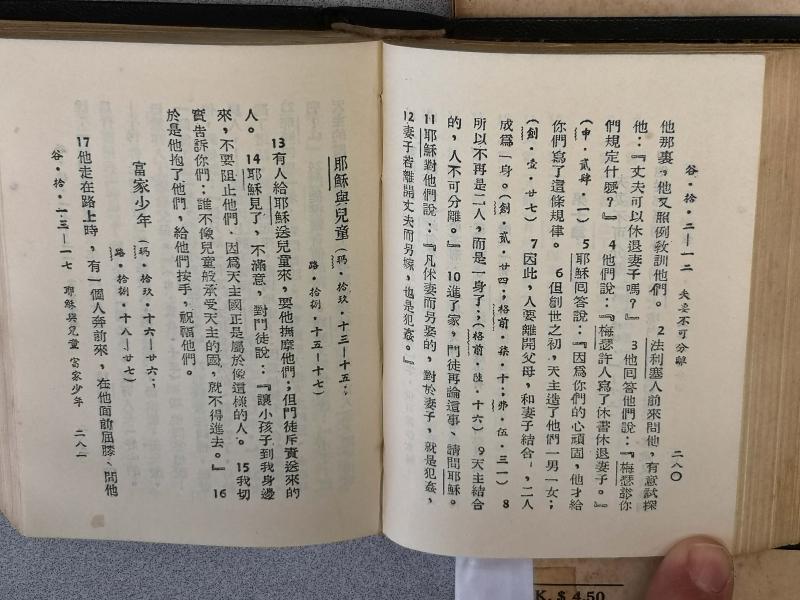 谷·拾·二—一二　夫妻不可分離　二八〇
他那裏，他又照例教訓他們。　2 法利塞人前來問他，有意試探
他：『丈夫可以休退妻子嗎？』　3 他回答他們說：『梅瑟諭你
們規定什麼？』　4 他們說：『梅瑟許人寫了休書休退妻子。』
（申·貳肆·一）　5 耶穌回答說：『因為你們的心頑固，他才給
你們寫了這條規律。　6 但創世之初，天主造了他們一男一女；
（創·壹·廿七）　7 因此，人要離開父母，和妻子結合，二人
成為一身。（創·貳·廿四；格前·柒·十；弗·伍·三一）　8
所以不再是二人，而是一身了；（格前·陸·十六）　9 天主結合
的，人不可分離。』　10 進了家，門徒再論這事、請問耶穌。
11 耶穌對他們說：『凡休妻而另娶的，對於妻子，就是犯姦，
12 妻子若離開丈夫而另嫁，也是犯姦。』
耶穌與兒童（瑪·拾玖·十三—十五；
路·拾捌·十五—十七）
13 有人給耶穌送兒童來，要他撫摩他們；但門徒斥責送來的
人。　14 耶穌見了，不滿意，對門徒說：『讓小孩子到我身邊
來，不要阻止他們，因為天主國正是屬於像這樣的人。　15 我切
實告訴你們：誰不像兒童般承受天主的國，就不得進去。』　16
於是他抱了他們，給他們按手，祝福他們。
富家少年（瑪·拾玖·十六—廿六；
路·拾捌·十八—廿七）
17 他走在路上時，有一個人奔前來，在他面前屈膝、問他
谷·拾·一三—一七　耶穌與兒童　富家少年　二八一
K. $ 4.50